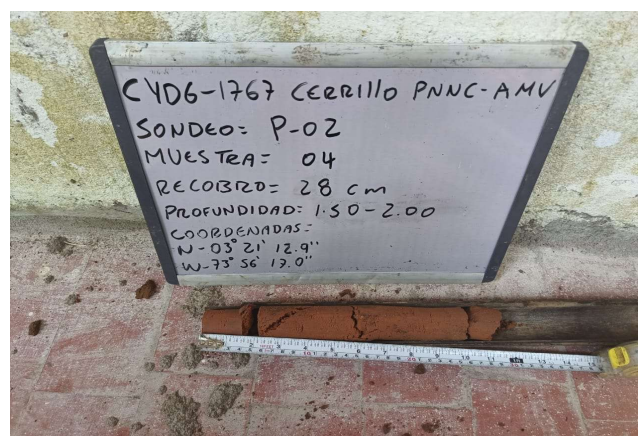 CYDG-1767 CERRILLO PNNC-AMV
SONDEO= P-02
MUESTRA= 04
RECOBRO= 28 cm
PROFUNDIDAD: 1.50-2.00
COORDENADAS=
N-03° 21' 12.9"
W-73° 56' 17.0"